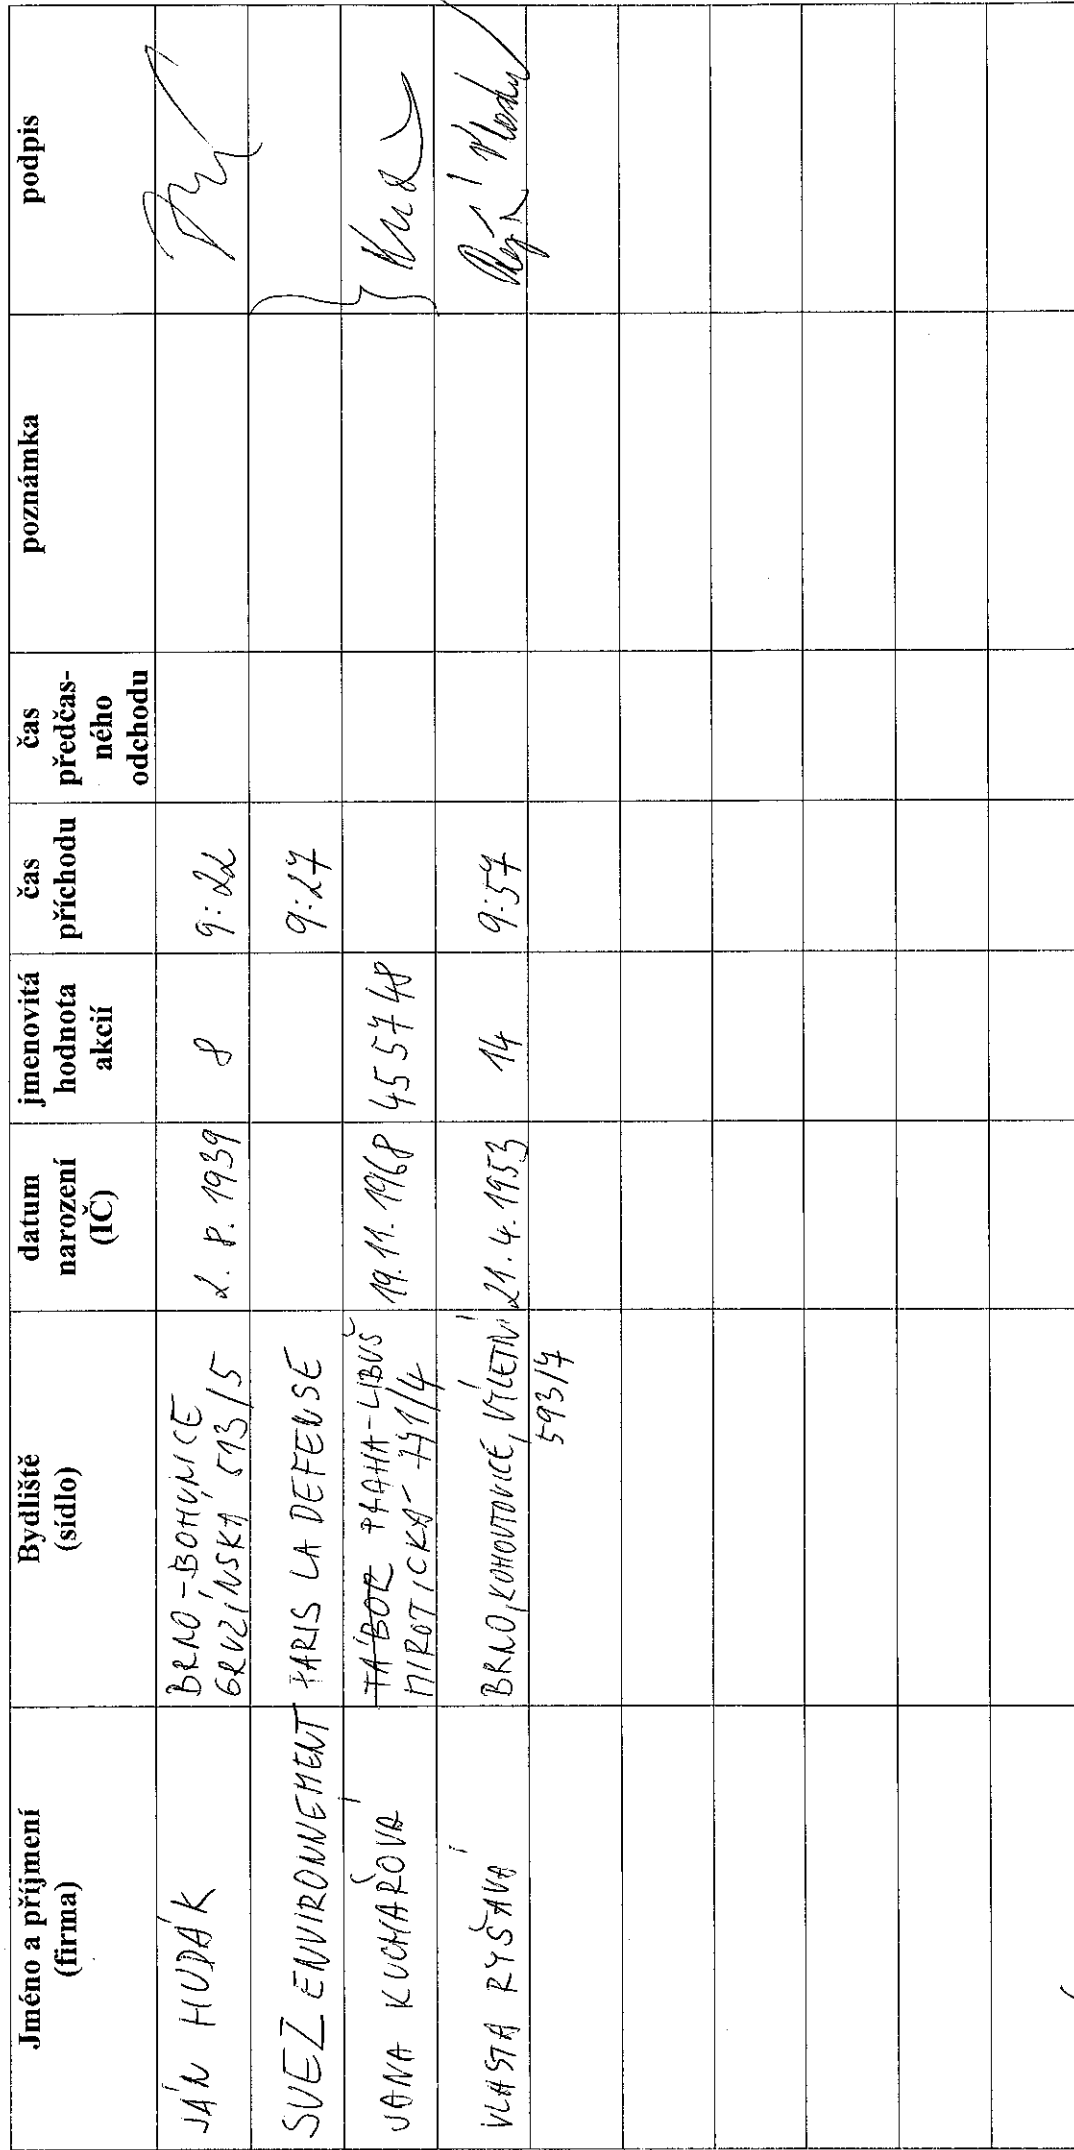 Jméno a příjmení (firma)
Bydliště (sídlo)
datum narození (IČ)
jmenovitá hodnota akcií
čas příchodu
čas předčas-ného odchodu
poznámka
podpis
JÁN HUDÁK
BRNO-BOHUNICE
GRUZÍNSKÁ 513/5
2. 8. 1939
8
9:22
SUEZ ENVIRONNEMENT
PARIS LA DEFENSE
9:27
JANA KUCHAŘOVÁ
TÁBOR PRAHA-LIBUŠ
MIROTICKÁ
19.11.1968
455748
VLASTA RYŠAVÁ
BRNO, KOHOUTOVICE, VÝLETNÍ
593/7
21.4.1953
14
9:57